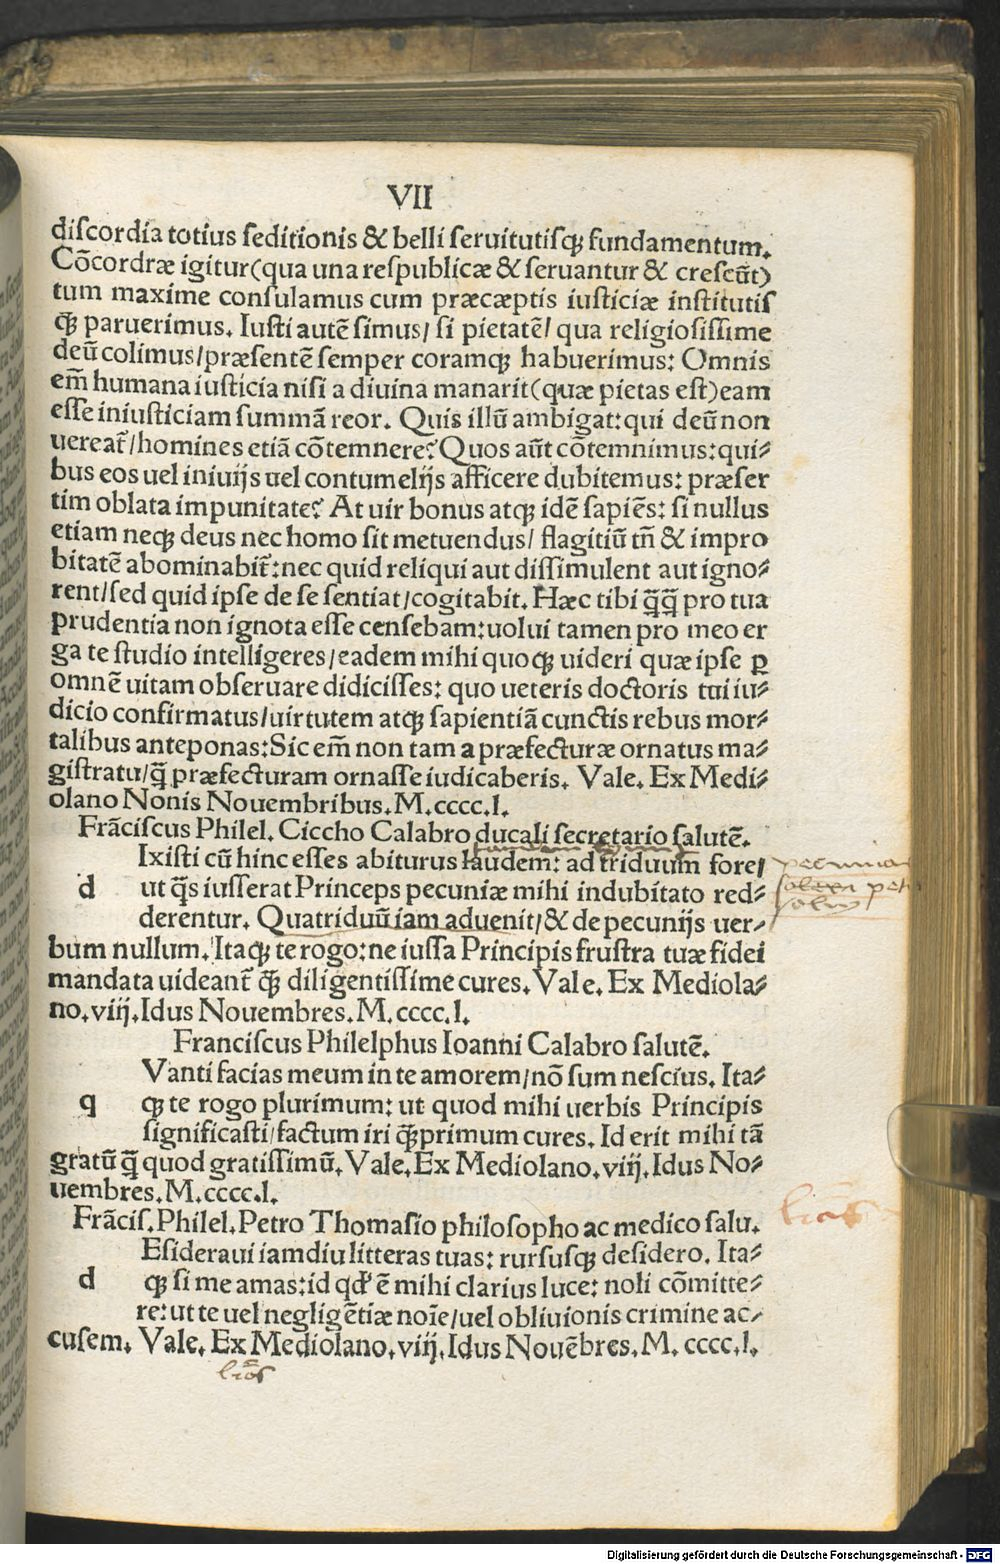 VII
diſcordia totius ſeditionis & belli ſeruitutiſqꝫ fundamentum.
Cõcordræ igitur(qua una reſpublicæ & ſeruantur & creſcũt)
tum maxime conſulamus cum præcæptis iuſticiæ inſtitutiſ
qꝫ paruerimus. Iuſti autẽ ſimus/ ſi pietatẽ/ qua religioſiſſime
deũ colimus/præſentẽ ſemper coramqꝫ habuerimus: Omnis
em̃ humana iuſticia niſi a diuina manarit(quæ pietas eſt)eam
eſſe iniuſticiam ſummã reor. Quis illũ ambigat:qui deũ non
uereat̃/homines etiã cõtemnere? Quos aũt cõtemnimus:qui⸗
bus eos uel iniuijs uel contumelijs afficere dubitemus: præſer
tim oblata impunitate? At uir bonus atqꝫ idẽ ſapiẽs: ſi nullus
etiam neqꝫ deus nec homo ſit metuendus/ flagitiũ tñ & impro
bitatẽ abominabit̃:nec quid reliqui aut diſſimulent aut igno⸗
rent/ſed quid ipſe de ſe ſentiat/cogitabit. Hæc tibi q̃q̃ pro tua
prudentia non ignota eſſe cenſebam:uolui tamen pro meo er
ga te ſtudio intelligeres/eadem mihi quoqꝫ uideri quæ ipſe ꝑ
omnẽ uitam obſeruare didiciſſes: quo ueteris doctoris tui iu⸗
dicio confirmatus/uirtutem atqꝫ ſapientiã cunctis rebus mor⸗
talibus anteponas:Sic em̃ non tam a præfecturæ ornatus ma⸗
giſtratu/q̃ præfecturam ornaſſe iudicaberis. Vale. Ex Medi⸗
olano Nonis Nouembribus.M.cccc.I.
Frãciſcus Philel. Ciccho Calabro ducali ſecretario ſalutẽ.
Ixiſti cũ hinc eſſes abiturus taudem: ad triduum fore/
d ut q̃s iuſſerat Princeps pecuniæ mihi indubitato red⸗
derentur. Quatriduũ iam aduenit/& de pecunijs uer⸗
bum nullum. Itaqꝫ te rogo:ne iuſſa Principis fruſtra tuæ fidei
mandata uideant̃ qꝫ diligentiſſime cures. Vale. Ex Mediola⸗
no.viij.Idus Nouembres.M.cccc.I.
Franciſcus Philelphus Ioanni Calabro ſalutẽ.
Vanti facias meum in te amorem/nõ ſum neſcius. Ita⸗
q qꝫ te rogo plurimum: ut quod mihi uerbis Principis
ſignificaſti/factum iri qꝫprimum cures. Id erit mihi tã
gratũ q̃ quod gratiſſimũ. Vale. Ex Mediolano.viij.Idus No⸗
uembres.M.cccc.I.
Frãciſ.Philel.Petro Thomaſio philoſopho ac medico ſalu.
Eſideraui iamdiu litteras tuas: rurſusqꝫ deſidero. Ita⸗
d qꝫ ſi me amas:id qd' ẽ mihi clarius luce: noli cõmitte⸗
re:ut te uel negligẽtiæ noĩe/uel obliuionis crimine ac⸗
cuſem. Vale. Ex Mediolano.viij.Idus Nouẽbres.M.cccc.I.
Digitalisierung gefördert durch die Deutsche Forschungsgemeinschaft - DFG